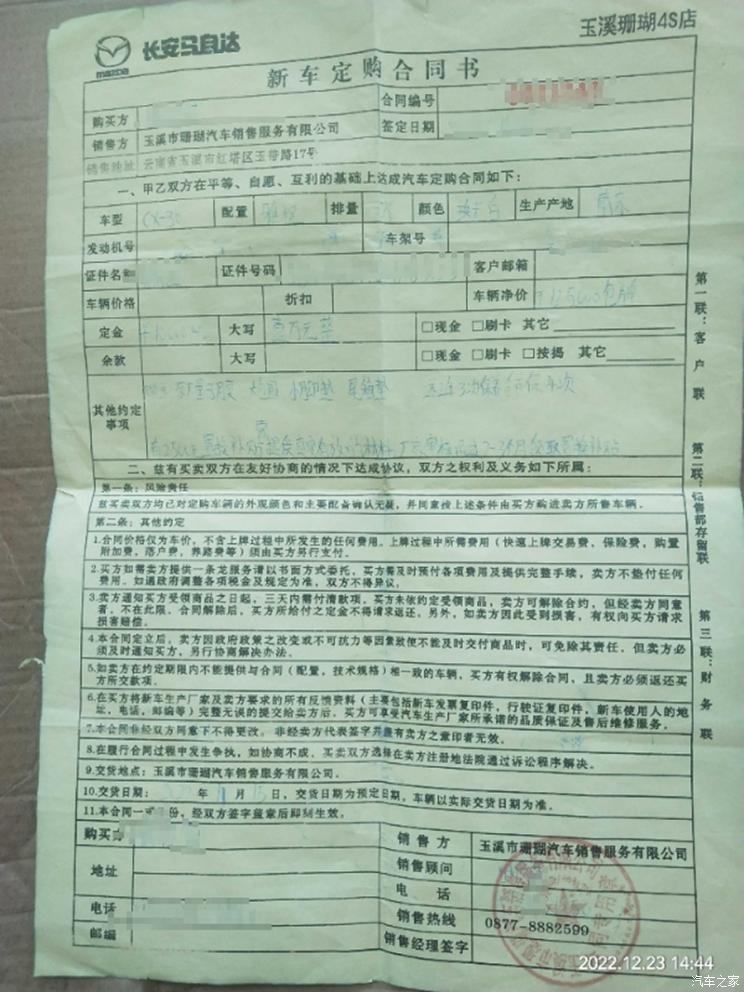 玉溪珊瑚4S店
mazda 长安马自达
新车定购合同书
购买方 合同编号
销售方 玉溪市珊瑚汽车销售服务有限公司 签定日期
销售地址 云南省玉溪市红塔区玉带路17号
一、甲乙双方在平等、自愿、互利的基础上达成汽车定购合同如下：
车型 CX-30 配置 排量 颜色 生产产地
发动机号 车架号
证件名称 证件号码 客户邮箱
车辆价格 折扣 车辆净价
定金 大写 壹万元整 □现金 □刷卡 其它
余款 大写 □现金 □刷卡 □按揭 其它
其他约定
事项
二、兹有买卖双方在友好协商的情况下达成协议，双方之权利及义务如下所属：
第一条：风险责任
兹买卖双方均已对定购车辆的外观颜色和主要配备确认无疑，并同意按上述条件由买方购进卖方所售车辆。
第二条：其他约定
1.合同价格仅为车价，不含上牌过程中所发生的任何费用。上牌过程中所需费用（快速上牌交易费、保险费，购置
附加费，落户费，养路费等）须由买方另行支付。
2.买方如需卖方提供一条龙服务请以书面方式委托，买方需及时预付各项费用及提供完整手续，卖方不垫付任何
费用。如遇政府调整各项税金及规定为准，双方不得异议。
3.卖方通知买方受领商品之日起，三天内需付清款项。买方未依约定受领商品，卖方可解除合约，但经卖方同意
者，不在此限。合同解除后，买方所给付之定金不得请求返还。另外，如卖方因此受到损害，有权向买方请求
损害赔偿。
4.本合同定立后，卖方因政府政策之改变或不可抗力等因素致使不能及时交付商品时，可免除其责任。但卖方必
须及时通知买方，另行协商解决办法。
5.如卖方在约定期限内不能提供与合同（配置，技术规格）相一致的车辆，买方有权解除合同，且卖方必须返还买
方所交款项。
6.在买方将新车生产厂家及卖方要求的所有反馈资料（主要包括新车发票复印件，行驶证复印件，新车使用人的地
址，电话，邮编等）完整无误的提交给卖方后，买方可享受汽车生产厂家所承诺的品质保证及售后维修服务。
7.本合同非经双方同意下不得更改。非经卖方代表签字并盖有卖方之意印者无效。
8.在履行合同过程中发生争执，如协商不成，买卖双方选择在卖方注册地法院通过诉讼程序解决。
9.交货地点：玉溪市珊瑚汽车销售服务有限公司。
10.交货日期： 年 月 日，交货日期为预定日期，车辆以实际交货日期为准。
11.本合同一 份，经双方签字盖章后即刻生效。
购买方 销售方 玉溪市珊瑚汽车销售服务有限公司
地址 销售顾问
电话
电话 销售热线 0877-8882599
邮编 销售经理签字
第一联：客户联
第二联：销售部存留联
第三联：财务联
2022.12.23 14:44
汽车之家